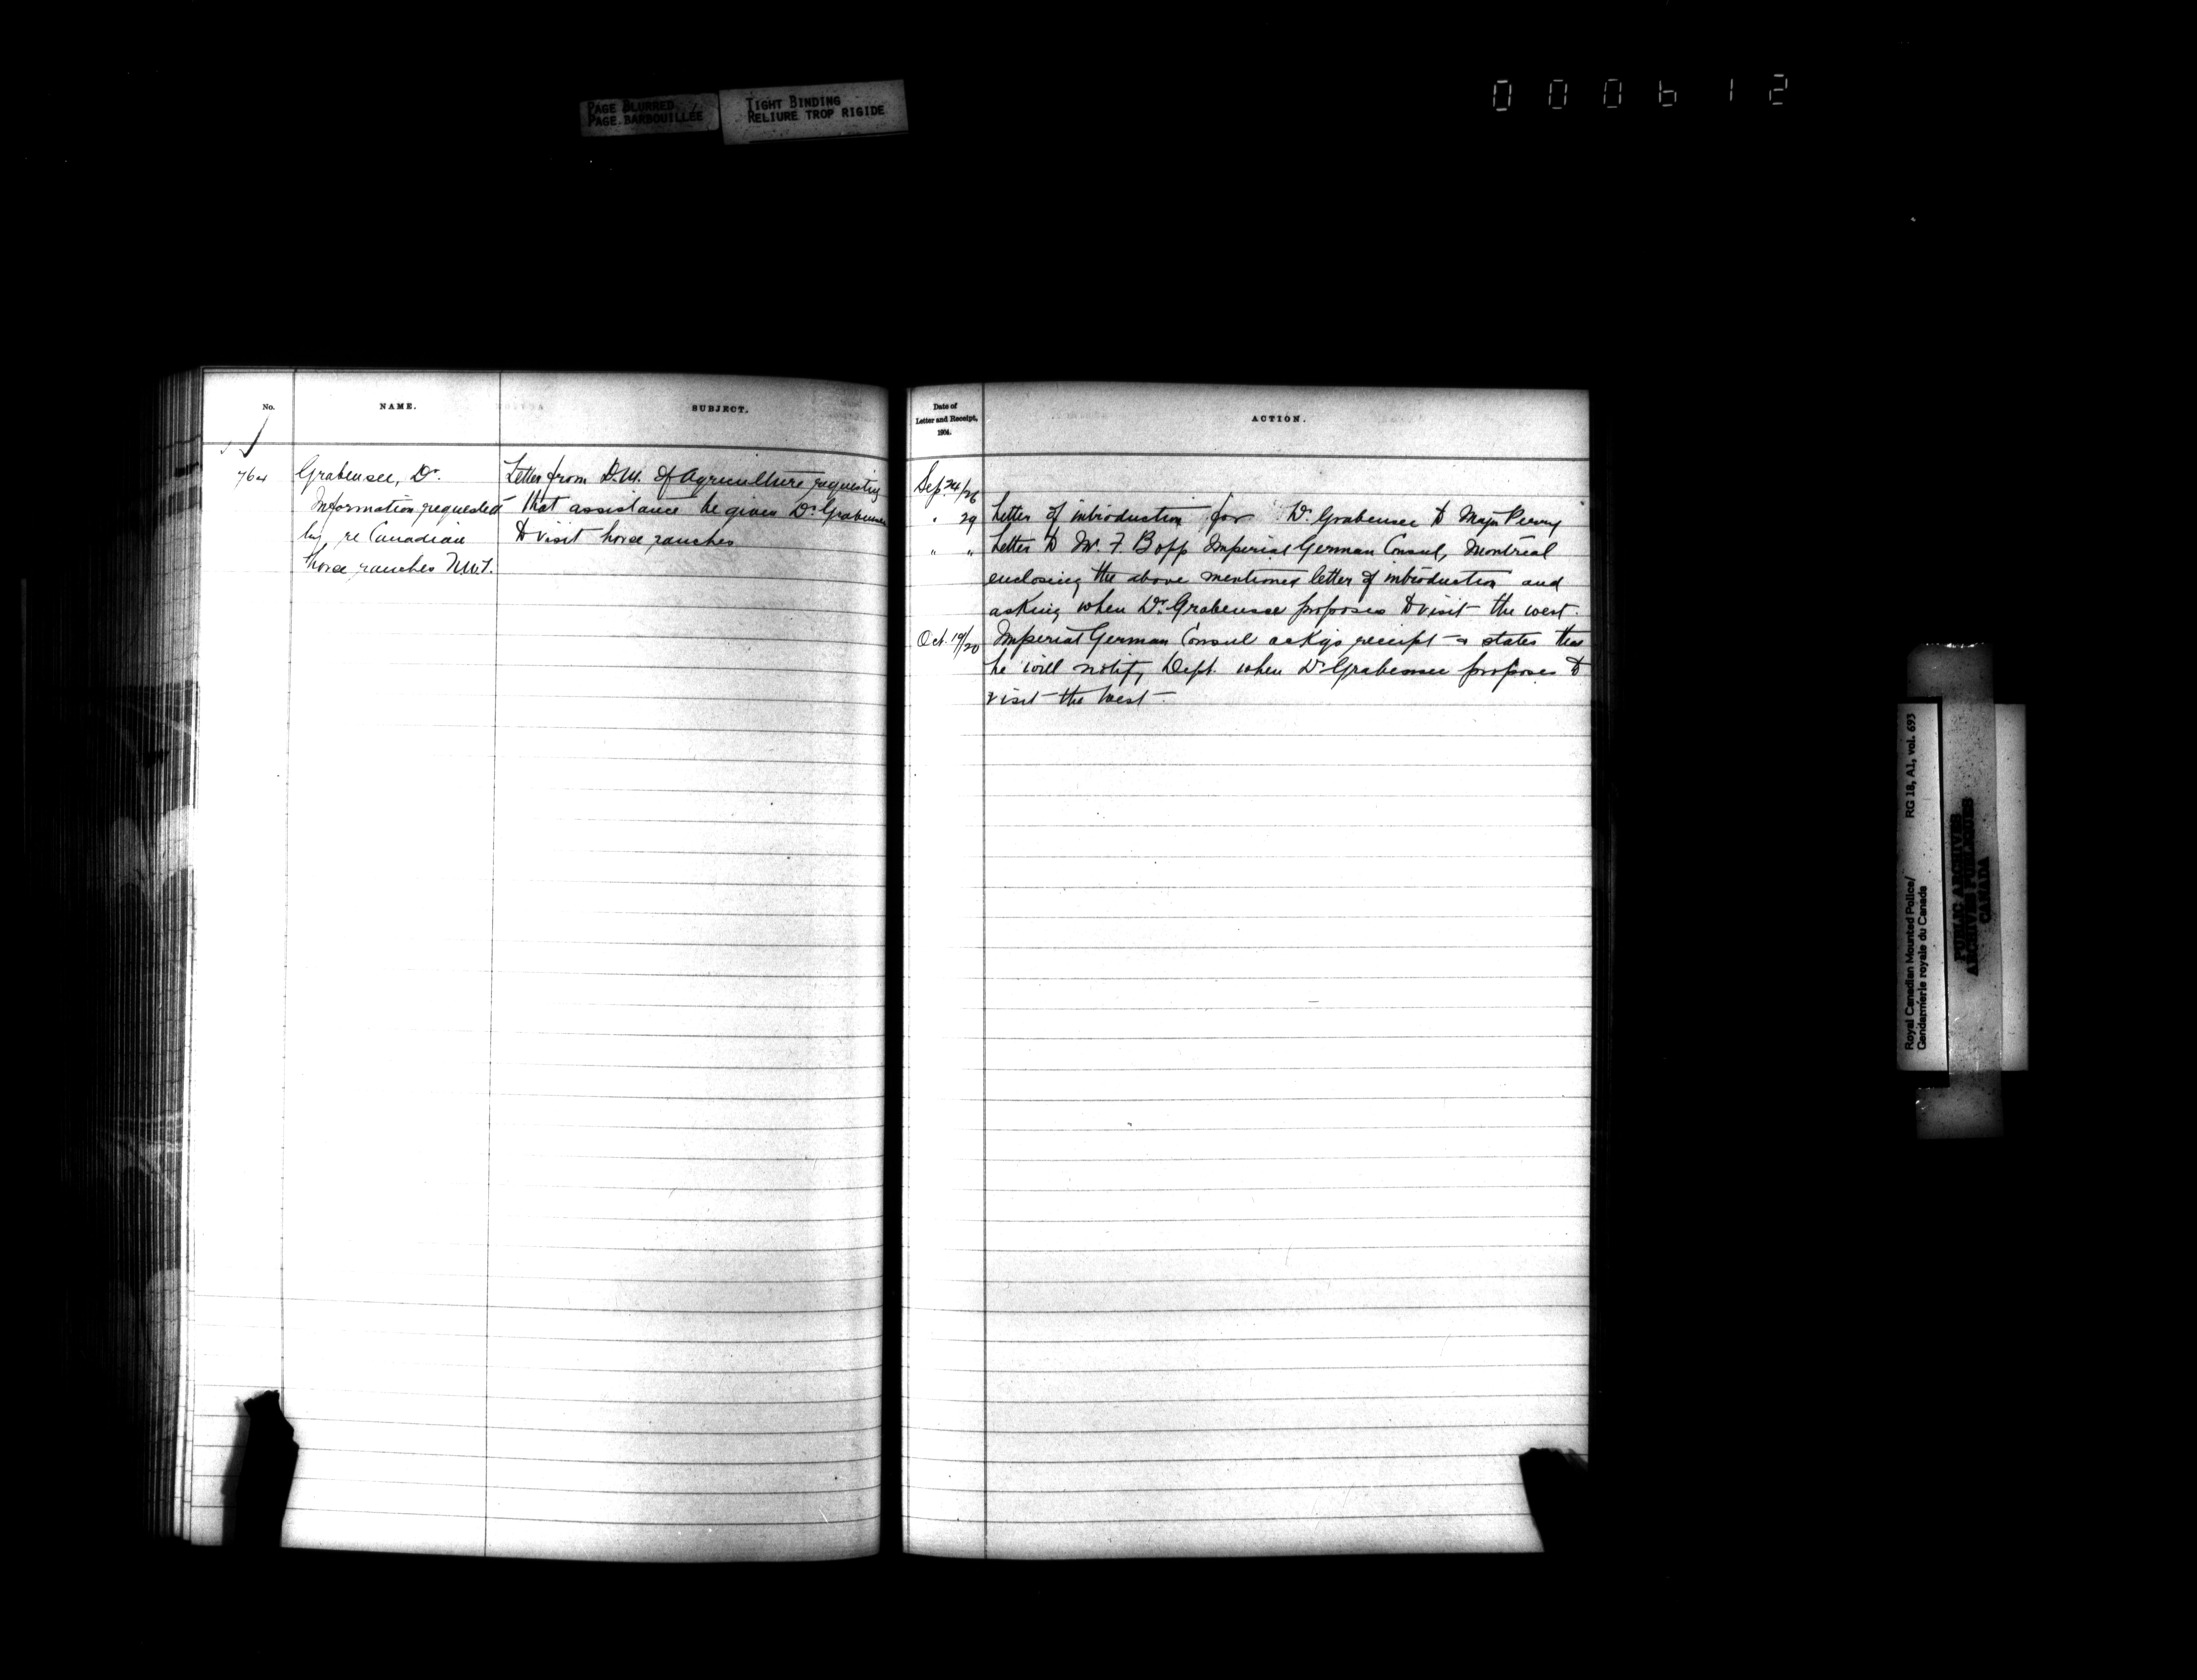 PAGE BLURRED
PAGE BARBOUILLÉE
TIGHT BINDING
RELIURE TROP RIGIDE
000612
No.
NAME.
SUBJECT.
764
Grabensee, Dr.
Information requested
by, re Canadian
horse ranches N.W.T.
Letter from D.M. of Agriculture requesting
that assistance be given Dr. Grabensee
to visit horse ranches
Date of
Letter and Receipt,
1904.
ACTION.
Sep. 24/26
" 29 Letter of introduction for Dr. Grabensee to Major Perry
" " Letter to Mr. F. Bopp Imperial German Consul, Montreal
enclosing the above mentioned letter of introduction and
asking when Dr. Grabensee proposes to visit the west.
Oct. 19/20 Imperial German Consul ackgs receipt & states that
he will notify Dept. when Dr Grabensee proposes to
visit the West
Royal Canadian Mounted Police/ RG 18, A1, vol. 693
Gendarmerie royale du Canada
PUBLIC ARCHIVES
ARCHIVES PUBLIQUES
CANADA